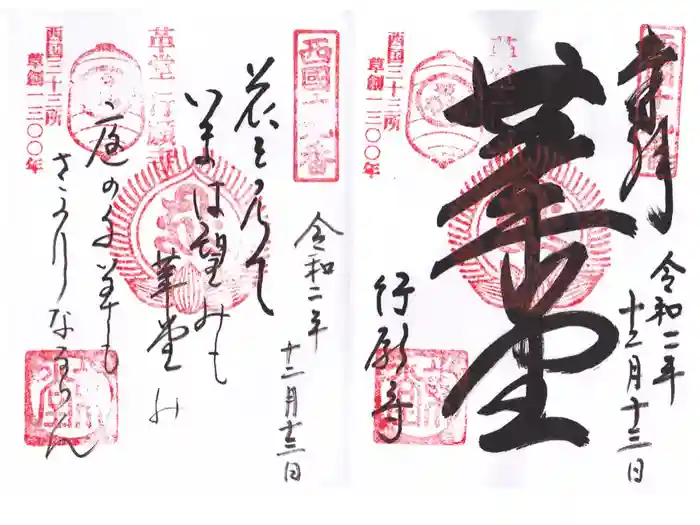 西國十九番
奉拝
令和二年
十二月十三日
革堂
行願寺
西国三十三所
草創一三〇〇年
西國十九番
令和二年
十二月十三日
花を見て
いまは望みも
革堂の
庭の千草も
さかりなるらん
革堂行願寺
西国三十三所
草創一三〇〇年